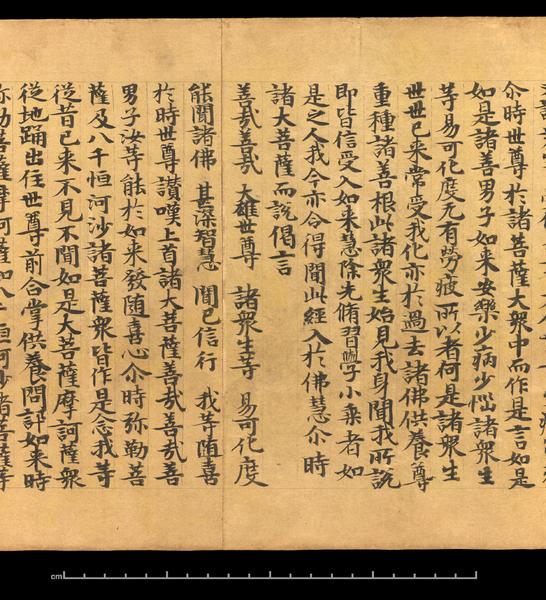 尒時世尊於諸菩薩大衆中而作是言如是
如是諸善男子如来安樂少病少惱諸衆生
等易可化度无有勞疲所以者何是諸衆生
世世已来常受我化亦於過去諸佛供養尊
重種諸善根此諸衆生始見我身聞我所說
即皆信受入如来慧除先脩習學小乘者如
是之人我今亦令得聞此經入於佛慧尒時
諸大菩薩而說偈言
善哉善哉 大雄世尊 諸衆生等 易可化度
能聞諸佛 甚深智慧 聞已信行 我等随喜
於時世尊讚嘆上首諸大菩薩善哉善哉善
男子汝等能於如来發随喜心尒時弥勒菩
薩及八千恒河沙諸菩薩衆皆作是念我等
從昔已来不見不聞如是大菩薩摩訶薩衆
從地踊出住世尊前合掌供養問訊如来時
弥勒菩薩摩訶薩知八千恒河沙諸菩薩等
cm